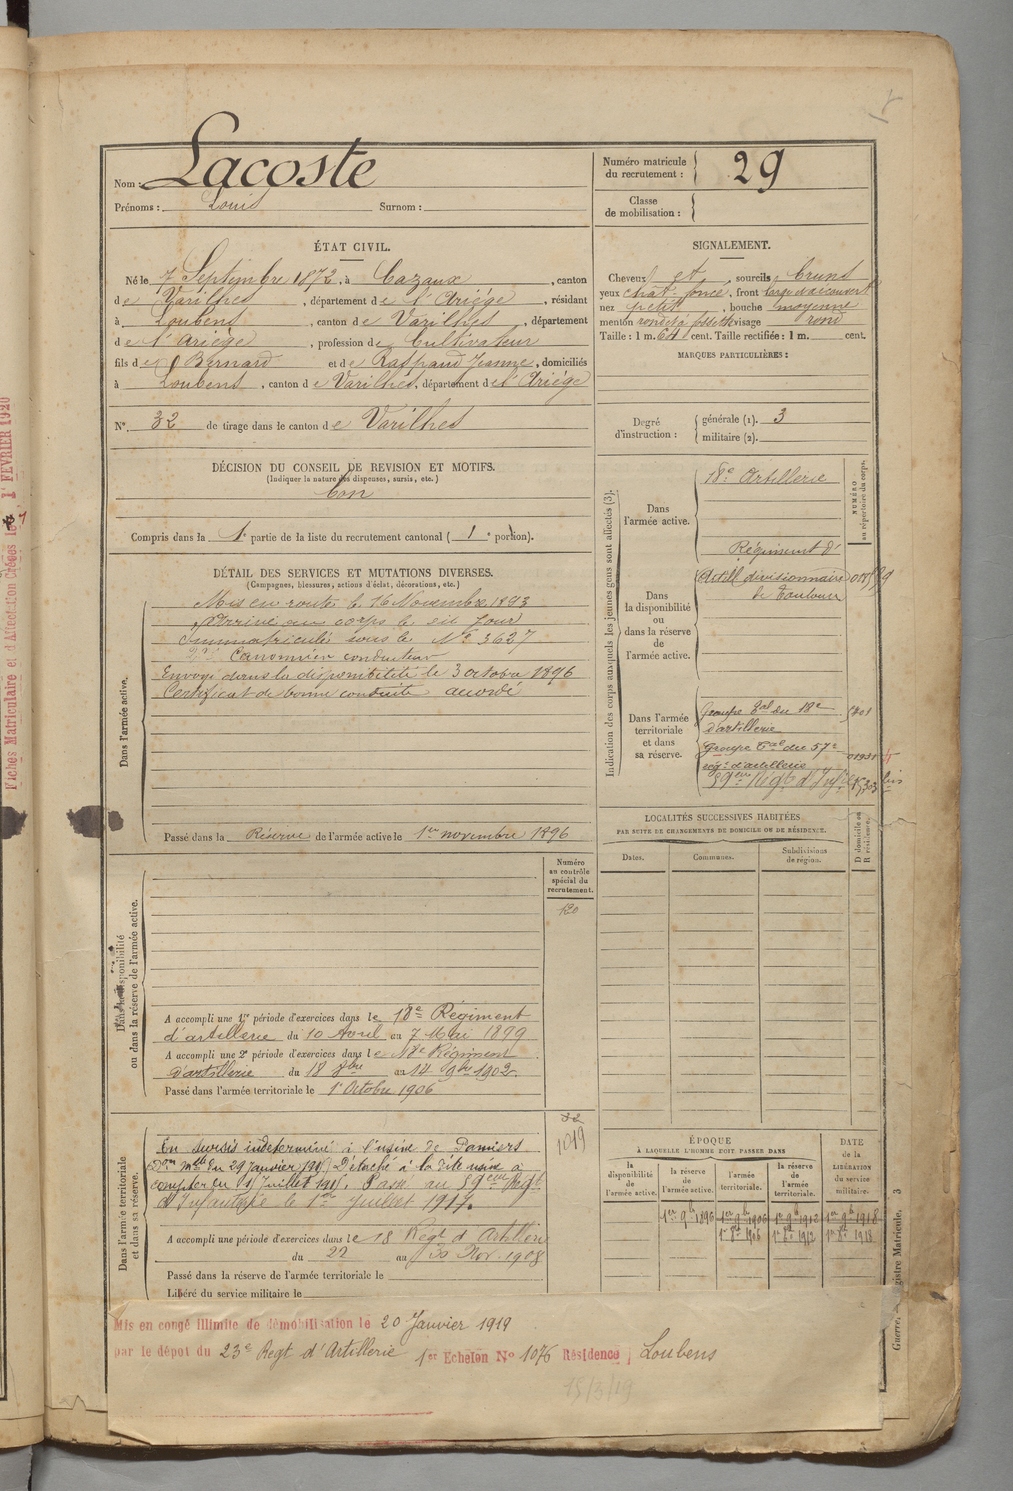 Nom : Lacoste
Prénoms : Louis Surnom :
Numéro matricule du recrutement : 29
Classe de mobilisation :
ÉTAT CIVIL.
Né le 7 Septembre 1872, à Cazaux, canton
de Varilhes, département de l'Ariège, résidant
à Loubens, canton de Varilhes, département
de l'Ariège, profession de Cultivateur
fils de Bernard et de Raspaud Jeanne, domiciliés
à Loubens, canton de Varilhes, département de l'Ariège
N° 32 de tirage dans le canton de Varilhes
DÉCISION DU CONSEIL DE REVISION ET MOTIFS.
(Indiquer la nature des dispenses, sursis, etc.)
bon
Compris dans la 1e partie de la liste du recrutement cantonal ( 1e portion).
DÉTAIL DES SERVICES ET MUTATIONS DIVERSES.
(Campagnes, blessures, actions d'éclat, décorations, etc.)
Dans l'armée active.
Mis en route le 16 Novembre 1893
Arrivé au corps le dit jour
immatriculé sous le N° 3627
2e Canonnier conducteur
Envoyé dans la disponibilité le 3 octobre 1896
Certificat de bonne conduite accordé
Passé dans la Réserve de l'armée active le 1er novembre 1896
Numéro au contrôle spécial du recrutement.
120
Dans la disponibilité ou dans la réserve de l'armée active.
A accompli une 1re période d'exercices dans le 18e Régiment
d'artillerie du 10 Avril au 7 Mai 1899
A accompli une 2e période d'exercices dans le 18e Régiment
d'artillerie du 18 8bre au 14 9bre 1902
Passé dans l'armée territoriale le 1er Octobre 1906
1049
Dans l'armée territoriale et dans sa réserve.
En sursis indéterminé à l'usine de Pamiers
du 29 Janvier Détaché à la dite usine à
compter du Juillet Passé au 59eme Régt
d'Infanterie le 1er Juillet 1917.
A accompli une période d'exercices dans le 18 Régt d'Artillerie
du 22 au 30 Nov. 1908
Passé dans la réserve de l'armée territoriale le
Libéré du service militaire le
Mis en congé illimité de démobilisation le 20 Janvier 1919
par le dépot du 23e Regt d'Artillerie 1er Echelon N° 1076 Résidence Loubens
15/3/19
SIGNALEMENT.
Cheveux et, sourcils bruns
yeux chât. foncé, front large et découvert
nez petit, bouche moyenne
menton rond et à fossette visage rond
Taille : 1 m. 64 cent. Taille rectifiée : 1 m. cent.
MARQUES PARTICULIÈRES :
Degré d'instruction : générale (1). 3
militaire (2).
Indication des corps auxquels les jeunes gens sont affectés (3).
NUMÉRO au répertoire du corps.
Dans l'armée active.
18e Artillerie
Dans la disponibilité ou dans la réserve de l'armée active.
Régiment d'
Artill divisionnaire
de Toulouse
Dans l'armée territoriale et dans sa réserve.
Groupe Tal du 18e
d'artillerie
Groupe Tal du 57e
rég. d'artillerie
59eme Régt d'Inf
LOCALITÉS SUCCESSIVES HABITÉES
PAR SUITE DE CHANGEMENTS DE DOMICILE OU DE RÉSIDENCE.
Dates. Communes. Subdivisions de région. D domicile ou R résidence.
ÉPOQUE
À LAQUELLE L'HOMME DOIT PASSER DANS
la disponibilité de l'armée active. la réserve de l'armée active. l'armée territoriale. la réserve de l'armée territoriale. DATE de la LIBÉRATION du service militaire.
1er 9b 1896 1er 9b 1906 1er 9b 1912 1er 9b 1918
1er 8b 1906 1er 8b 1912 1er 8b 1918
Registre Matricule. 3
Fiches Matriculaire et d'Affectation Créées le 1er FÉVRIER 1920